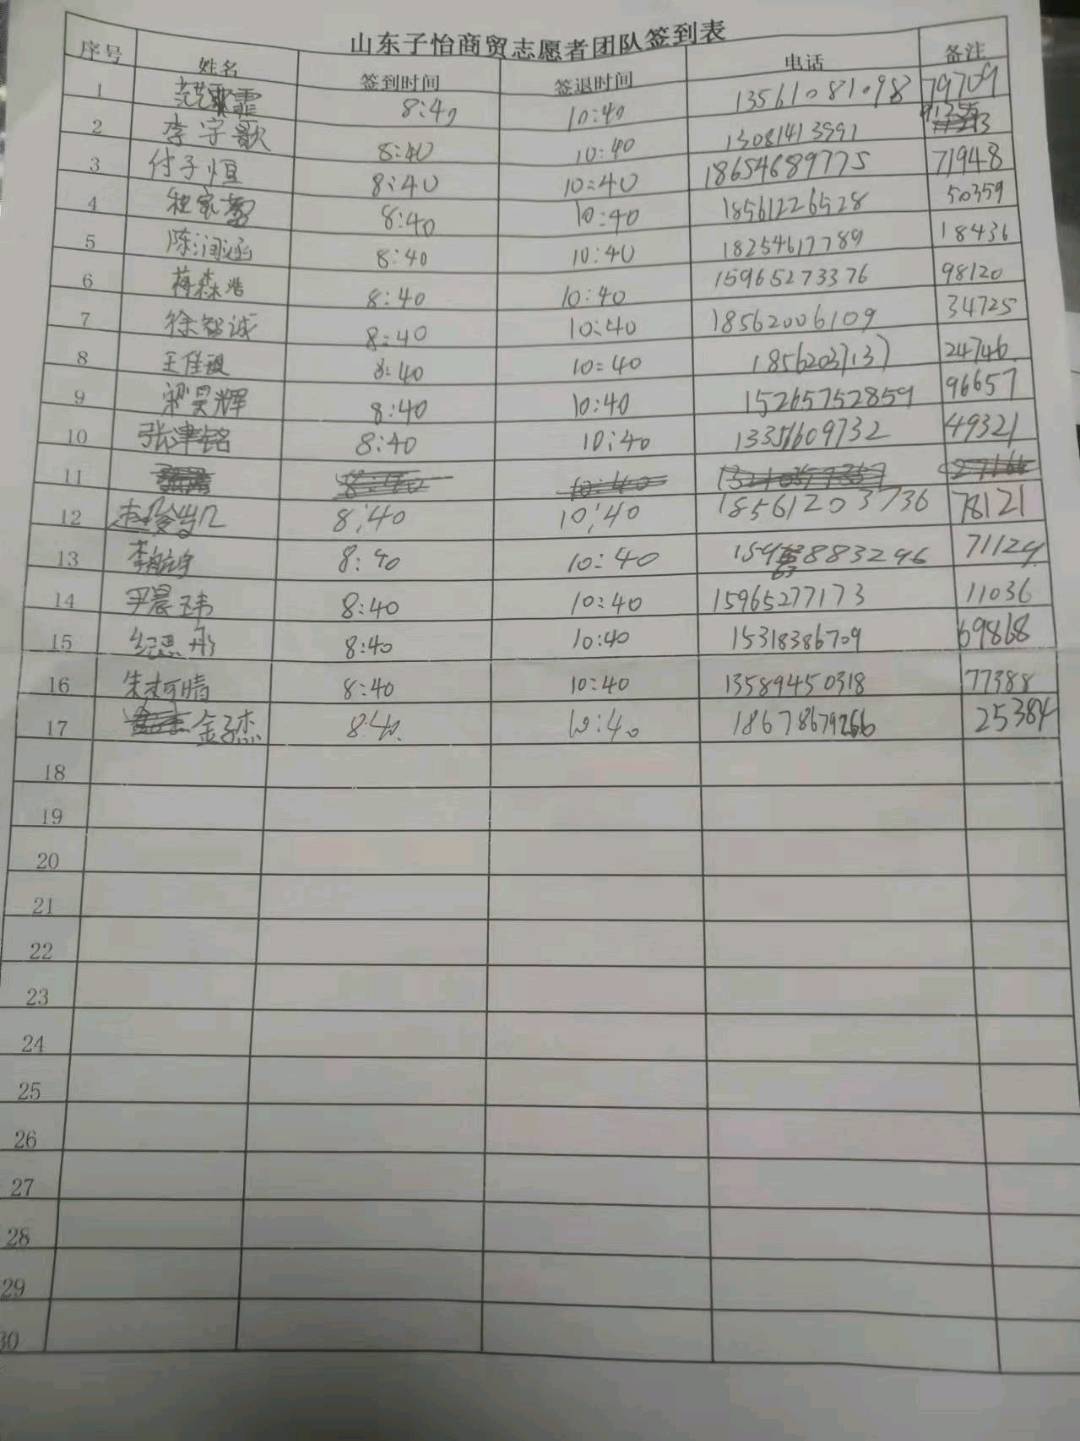 山东子怡商贸志愿者团队签到表
序号 姓名 签到时间 签退时间 电话 备注
1 8:40 10:40 13561081098 79709
2 李字歌 8:40 10:40 13081413991
3 付子恒 8:40 10:40 18654689775 71948
4 程家 8:40 10:40 18561226528 50359
5 陈润涵 8:40 10:40 18254617789 18436
6 蒋森浩 8:40 10:40 15965273376 98120
7 徐智诚 8:40 10:40 18562006109 34725
8 王佳 8:40 10:40 18562037137 24746
9 梁昊辉 8:40 10:40 15265752859 96657
10 张津铭 8:40 10:40 13351609732 49321
11 8:40 10:40
12 8:40 10:40 18561203736 78121
13 李航宇 8:40 10:40 71124
14 尹晨玮 8:40 10:40 15965277173 11036
15 纪思彤 8:40 10:40 15318386709 69868
16 朱柯晴 8:40 10:40 13589450318 77388
17 金子杰 8:40 10:40 25384
18
19
20
21
22
23
24
25
26
27
28
29
30